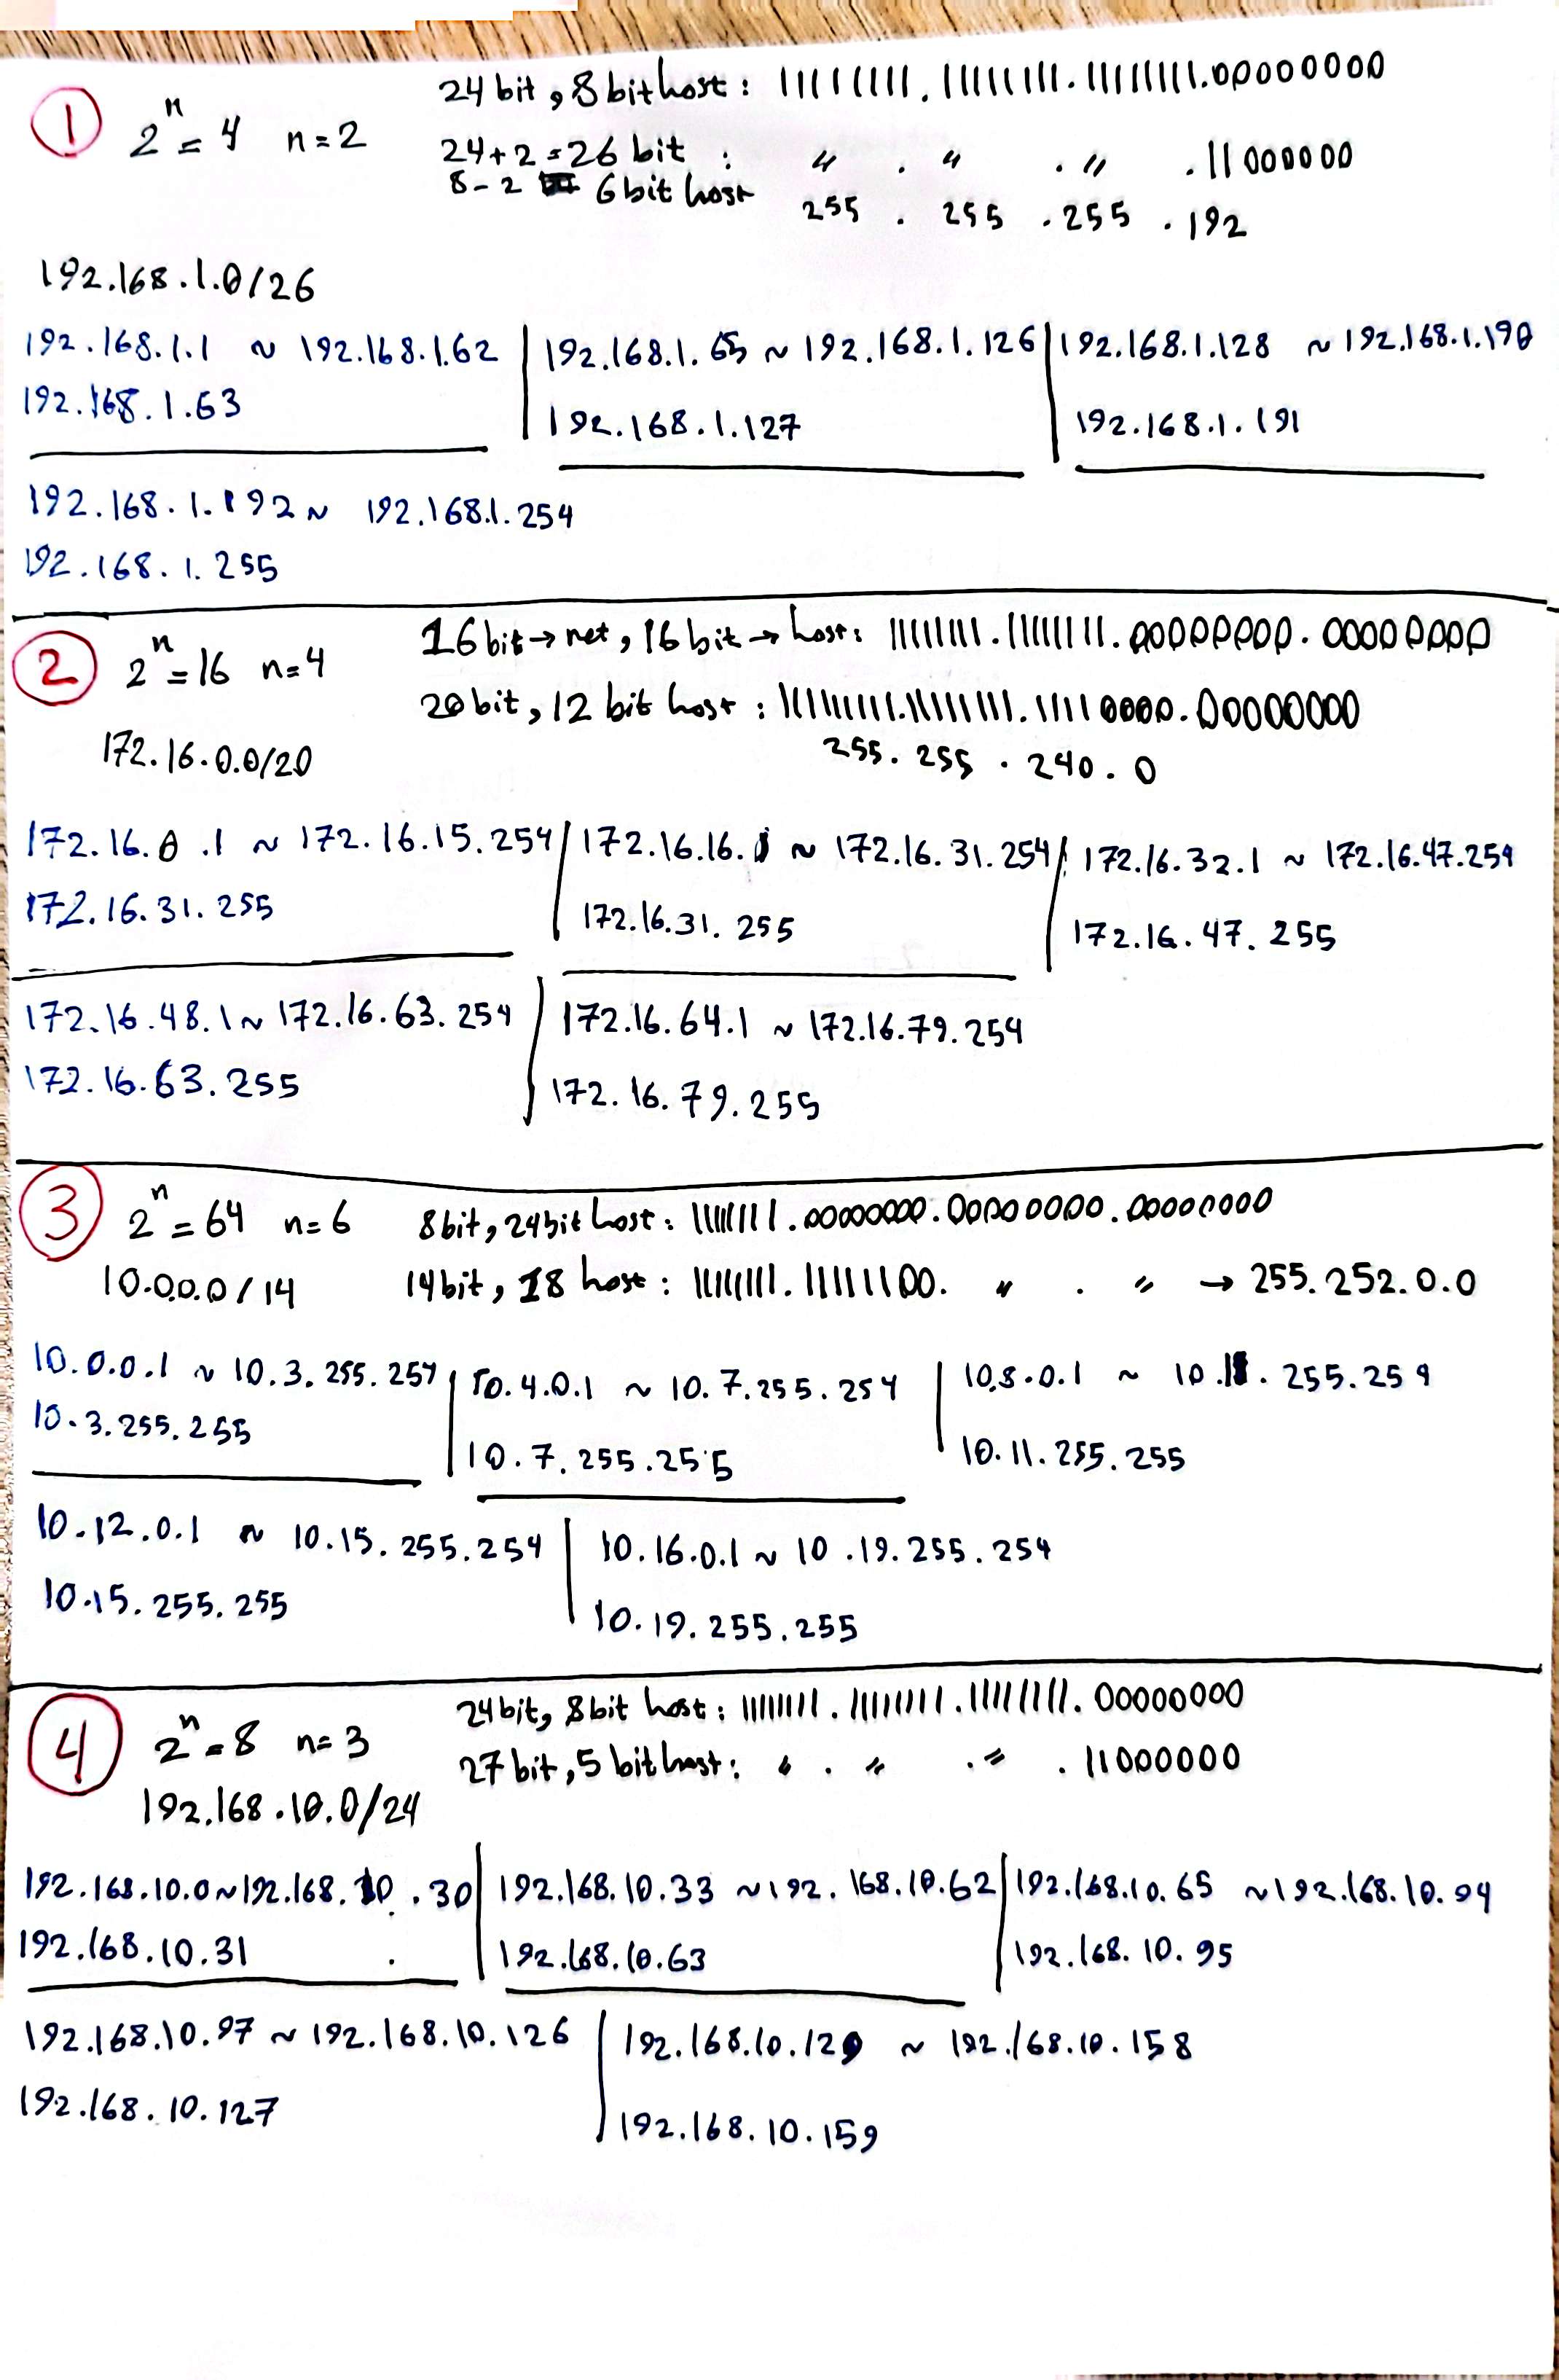 1 2^n = 4 n=2 24 bit, 8 bit host : 11111111.11111111.11111111.00000000
24+2=26 bit : " . " . " .11000000
8-2 6 bit host 255 . 255 . 255 . 192
192.168.1.0/26
192.168.1.1 ~ 192.168.1.62 | 192.168.1.65 ~ 192.168.1.126 | 192.168.1.128 ~ 192.168.1.190
192.168.1.63 | 192.168.1.127 | 192.168.1.191
192.168.1.192 ~ 192.168.1.254
192.168.1.255
2 2^n = 16 n=4 16 bit → net, 16 bit → host : 11111111.11111111.00000000.00000000
20 bit, 12 bit host : 11111111.11111111.11110000.00000000
172.16.0.0/20 255.255.240.0
172.16.0.1 ~ 172.16.15.254 | 172.16.16.1 ~ 172.16.31.254 | 172.16.32.1 ~ 172.16.47.254
172.16.31.255 | 172.16.31.255 | 172.16.47.255
172.16.48.1 ~ 172.16.63.254 | 172.16.64.1 ~ 172.16.79.254
172.16.63.255 | 172.16.79.255
3 2^n = 64 n=6 8 bit, 24 bit host : 11111111.00000000.00000000.00000000
10.0.0.0/14 14 bit, 18 host : 11111111.11111100. " . " → 255.252.0.0
10.0.0.1 ~ 10.3.255.254 | 10.4.0.1 ~ 10.7.255.254 | 10.8.0.1 ~ 10.11.255.254
10.3.255.255 | 10.7.255.255 | 10.11.255.255
10.12.0.1 ~ 10.15.255.254 | 10.16.0.1 ~ 10.19.255.254
10.15.255.255 | 10.19.255.255
4 2^n = 8 n=3 24 bit, 8 bit host : 11111111.11111111.11111111.00000000
27 bit, 5 bit host : " . " . " .11000000
192.168.10.0/24
192.168.10.0 ~ 192.168.10.30 | 192.168.10.33 ~ 192.168.10.62 | 192.168.10.65 ~ 192.168.10.94
192.168.10.31 | 192.168.10.63 | 192.168.10.95
192.168.10.97 ~ 192.168.10.126 | 192.168.10.129 ~ 192.168.10.158
192.168.10.127 | 192.168.10.159